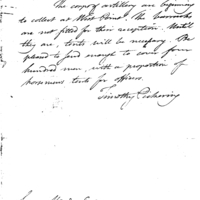 The corps of artillery are beginning
to collect at West Point. The Barracks
are not fitted for their reception. Until
they are, tents will be necessary. Be
pleased to send enough to cover four
hundred men, with a proportion of
horsemens tents for officers.
Timothy Pickering